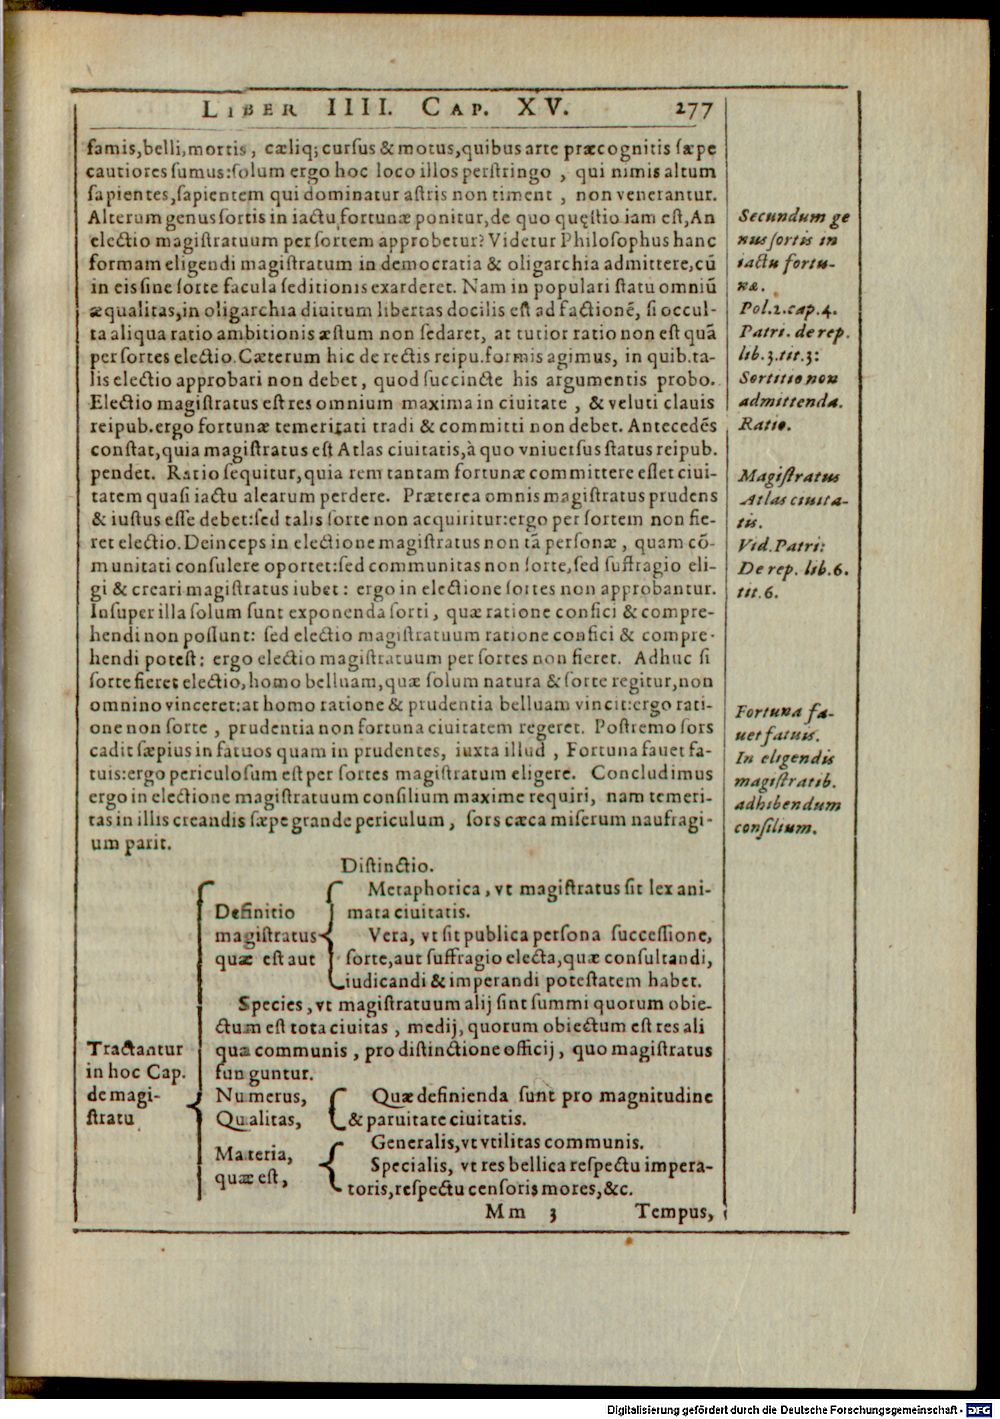 LIBER IIII. CAP. XV. 277
famis,belli,mortis, cæliq; cursus & motus,quibus arte præcognitis sæpe
cautiores sumus:solum ergo hoc loco illos perstringo, qui nimis altum
sapientes,sapientem qui dominatur astris non timent, non venerantur.
Alterum genus sortis in iactu fortunæ ponitur,de quo quęstio iam est,An
electio magistratuum per sortem approbetur? Videtur Philosophus hanc
formam eligendi magistratum in democratia & oligarchia admittere,cū
in eis sine sorte facula seditionis exarderet. Nam in populari statu omniū
æqualitas,in oligarchia diuitum libertas docilis est ad factionē, si occul-
ta aliqua ratio ambitionis æstum non sedaret, at tutior ratio non est quā
per sortes electio. Cæterum hic de rectis reipu.formis agimus, in quib.ta-
lis electio approbari non debet, quod succincte his argumentis probo.
Electio magistratus est res omnium maxima in ciuitate, & veluti clauis
reipub.ergo fortunæ temeritati tradi & committi non debet. Antecedēs
constat,quia magistratus est Atlas ciuitatis,à quo vniuersus status reipub.
pendet. Ratio sequitur,quia rem tantam fortunæ committere esset ciui-
tatem quasi iactu alearum perdere. Præterea omnis magistratus prudens
& iustus esse debet:sed talis sorte non acquiritur:ergo per sortem non fie-
ret electio. Deinceps in electione magistratus non tā personæ, quam cō-
munitati consulere oportet:sed communitas non sorte,sed suffragio eli-
gi & creari magistratus iubet: ergo in electione sortes non approbantur.
Insuper illa solum sunt exponenda sorti, quæ ratione confici & compre-
hendi non possunt: sed electio magistratuum ratione confici & compre-
hendi potest: ergo electio magistratuum per sortes non fieret. Adhuc si
sorte fieret electio,homo belluam,quæ solum natura & sorte regitur,non
omnino vinceret:at homo ratione & prudentia belluam vincit:ergo rati-
one non sorte, prudentia non fortuna ciuitatem regeret. Postremo sors
cadit sæpius in fatuos quam in prudentes, iuxta illud, Fortuna fauet fa-
tuis:ergo periculosum est per sortes magistratum eligere. Concludimus
ergo in electione magistratuum consilium maxime requiri, nam temeri-
tas in illis creandis sæpe grande periculum, sors cæca miserum naufragi-
um parit.
Secundum ge
nus sortis in
iactu fortu-
næ.
Pol.2.cap.4.
Patri. de rep.
lib.3.tit.3:
Sortitio non
admittenda.
Ratio.
Magistratus
Atlas ciuita-
tis.
Vid.Patri:
De rep. lib.6.
tit.6.
Fortuna fa-
uet fatuis.
In eligendis
magistratib.
adhibendum
consilium.
Distinctio.
Tractantur
in hoc Cap.
de magi-
stratu
Definitio
magistratus
quæ est aut
Metaphorica, vt magistratus sit lex ani-
mata ciuitatis.
Vera, vt sit publica persona successione,
sorte,aut suffragio electa,quæ consultandi,
iudicandi & imperandi potestatem habet.
Species, vt magistratuum alij sint summi quorum obie-
ctum est tota ciuitas, medij, quorum obiectum est res ali
qua communis, pro distinctione officij, quo magistratus
funguntur.
Numerus,
Qualitas,
Quæ definienda sunt pro magnitudine
& paruitate ciuitatis.
Materia,
quæ est,
Generalis,vt vtilitas communis.
Specialis, vt res bellica respectu impera-
toris,respectu censoris mores,&c.
Mm 3 Tempus,
Digitalisierung gefördert durch die Deutsche Forschungsgemeinschaft - DFG